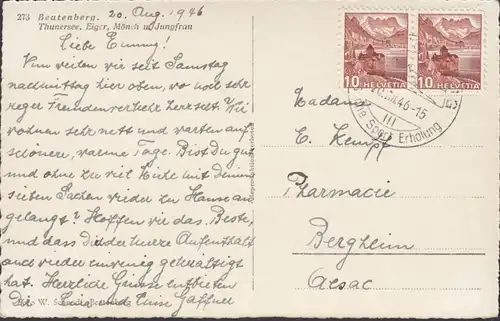 273 Beatenberg. 20. Aug. 1946
Thunersee, Eiger, Mönch u. Jungfrau
Liebe Emmy!
Nun weilen wir seit Samstag
nachmittag hier oben, wo sehr
reger Fremdenverkehr herrscht. Wir
wohnen sehr nett und warten auf
schönere, warme Tage. Bist Du gut
und ohne zu viel Hitze mit Deinen
sieben Sachen wieder zu Hause an-
gelangt? Hoffen wir das Beste,
und dass Dich der Aufenthalt
auch wieder ein wenig gekräftigt
hat. Herzliche Grüsse entbieten
Dir und Gaffner
W.
10 HELVETIA 10 HELVETIA
46-15
III
Sport Erholung
Madame
E. Kempf
Pharmacie
Bergheim
Alsac.